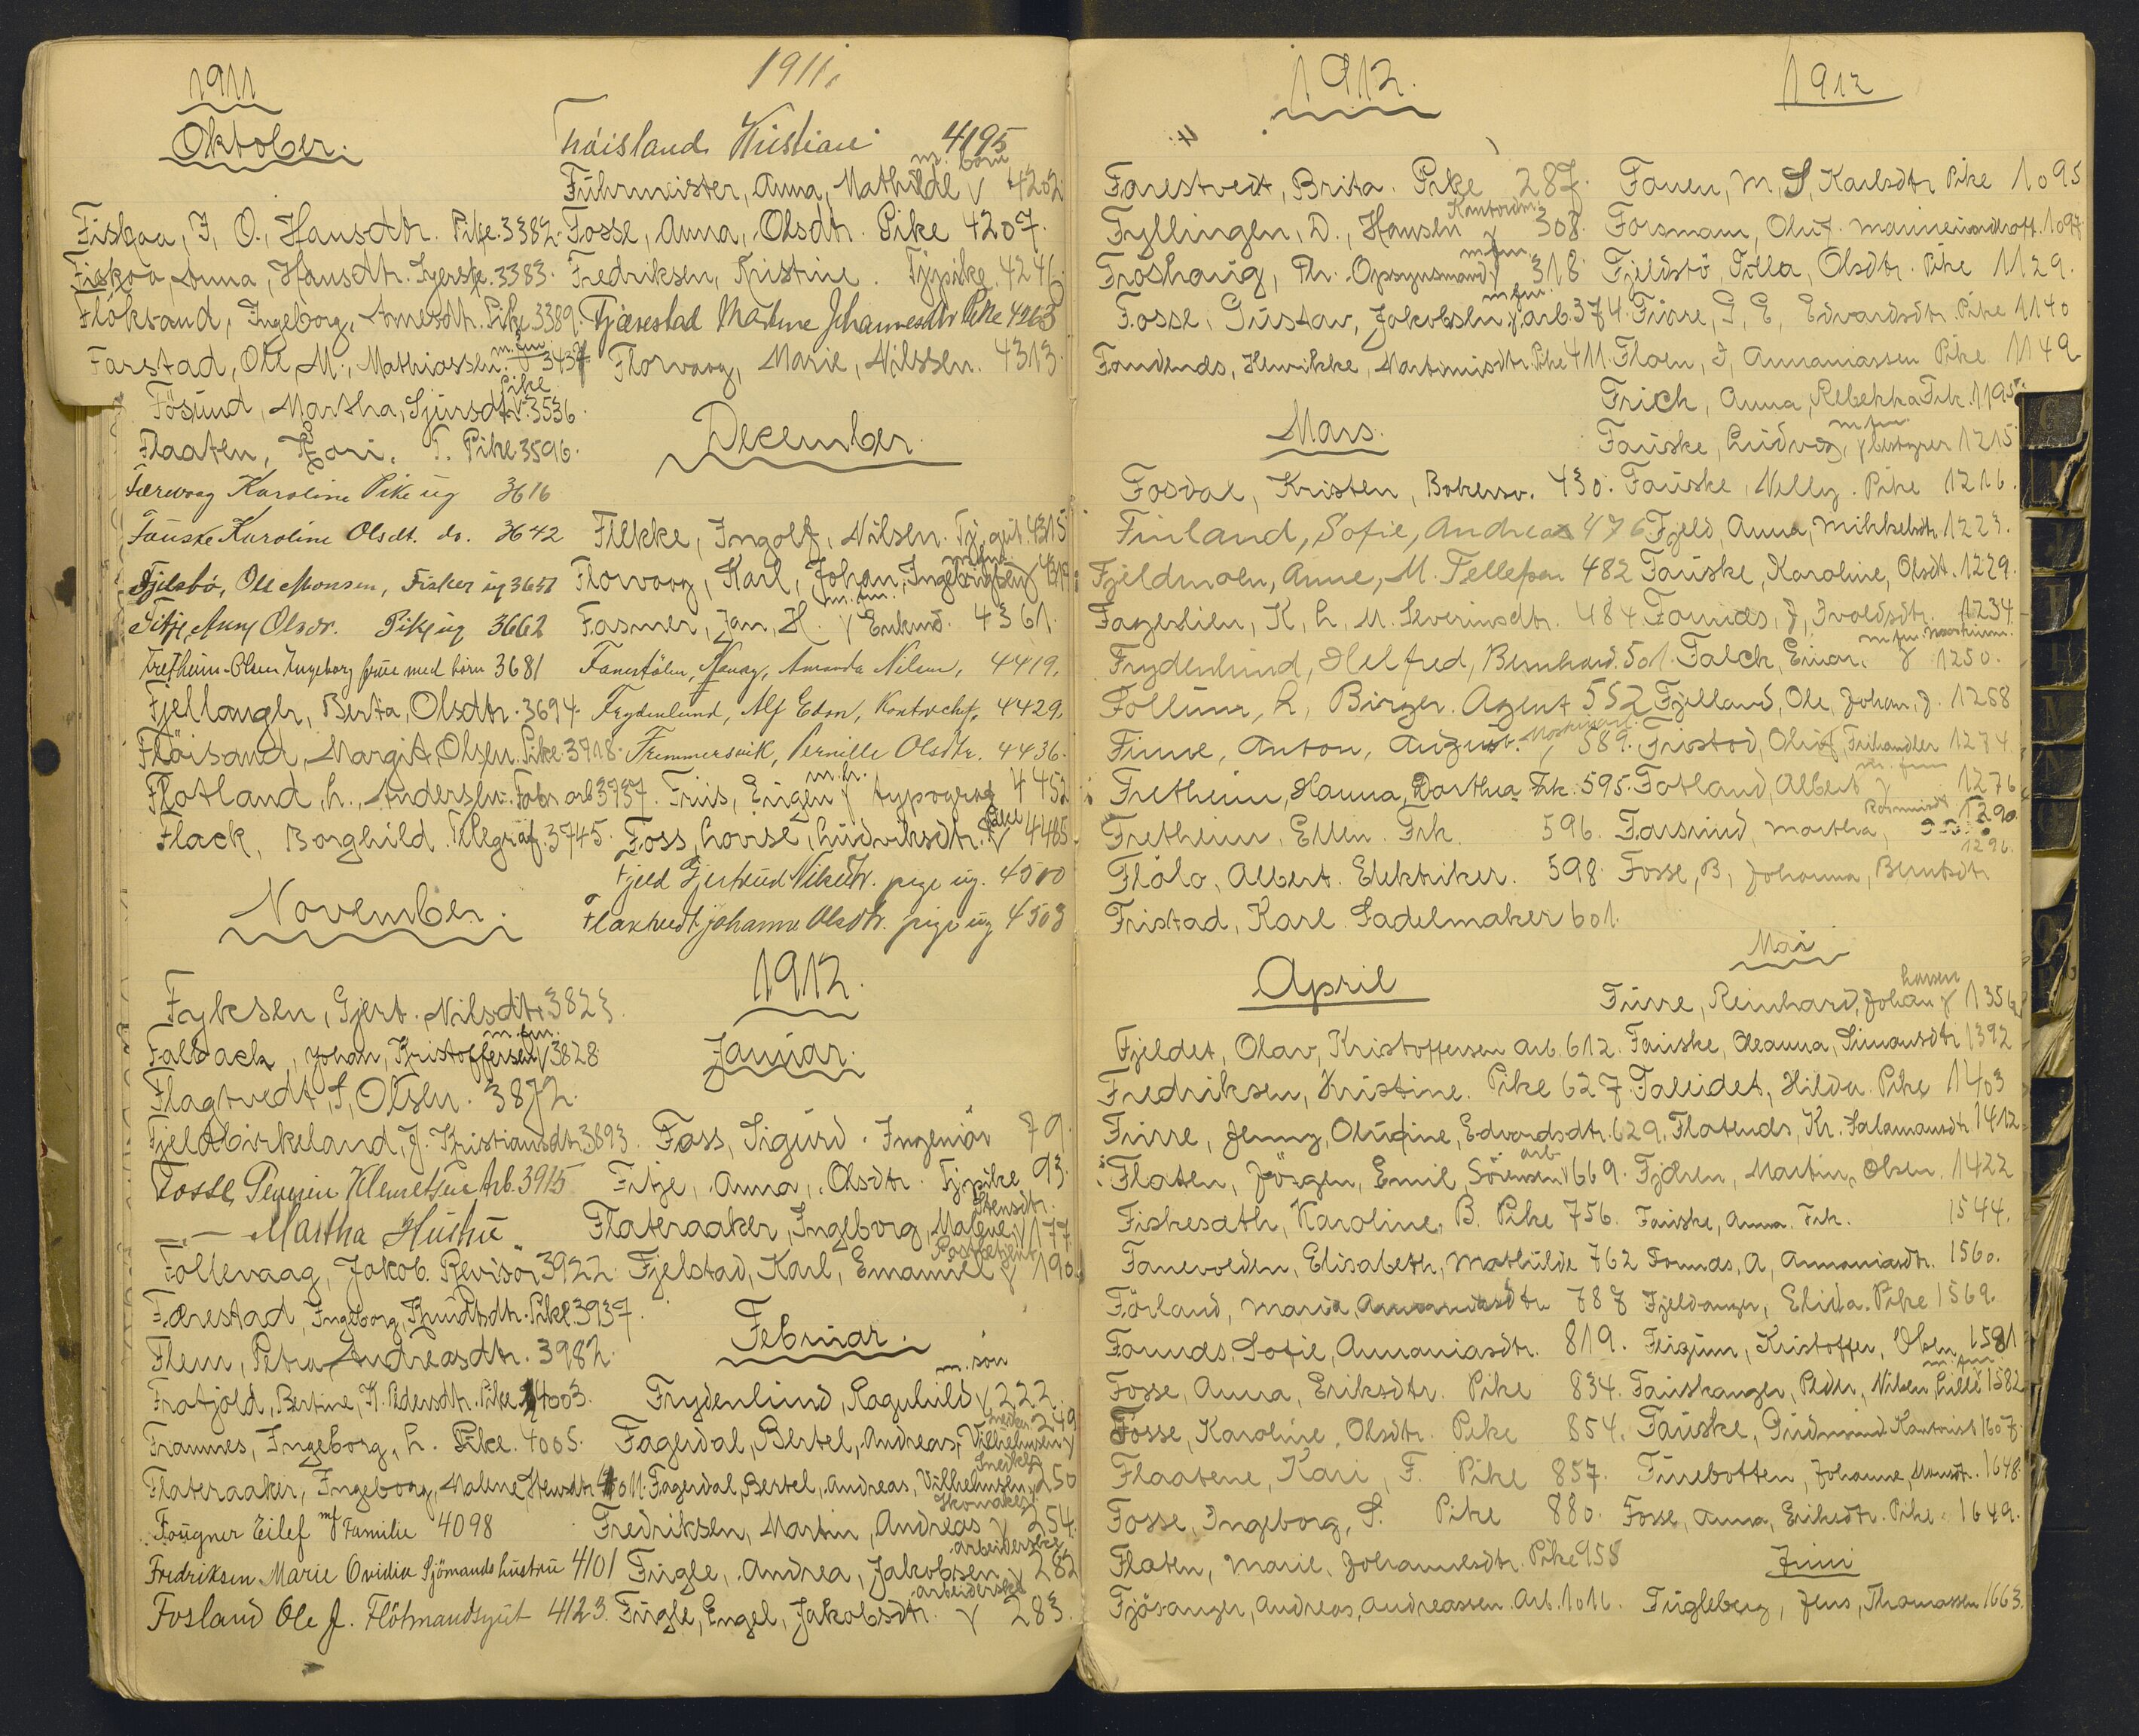 1911
Oktober.
Fiskaa, I, O., Hansdtr. Pike. 3382.
Fiskaa, Anna, Hansdtr. Syerske. 3383.
Flöksand, Ingeborg, Arnesdtr. Pike 3389.
Farstad, Ole, M., Mathiassen. m.fm. 3437
Fösund, Martha, Sjursdtr. Pike 3536.
Flaaten, Kari, T. Pike 3596.
Færevaag Karoline Pike ug 3616
Fauske Karoline Olsdt. do. 3642
Fjelsbö, Ole Monsen, Fisker ug 3651
Fitje, Anna Olsdr. Pike ug 3662
Fretheim-Olsen Ingeborg frue med börn 3681
Fjellanger, Berta, Olsdtr. 3694.
Flöisand, Margit, Olsen. Pike. 3718.
Flotland, L., Andersen. Fabr arb 3737.
Flack, Borghild. Telegraf. 3745.
November.
Fyksen, Gjert. Nilsdtr 3823.
Falback, Johan, Kristoffersen m.fm. 3828
Flagtvedt, S, Olsen. 3872.
Fjeldbirkeland, J. Kristiansdtr 3893
Fosse, Klemetsen Arb. 3915
— Martha Hustru
Follevaag, Jakob. Revisor 3922
Færestad, Ingeborg, Knudsdtr. Pike. 3937.
Flem, Petra Andreasdtr. 3982.
Fratjold, Bertine, K. Pedersdtr. Pike 4003.
Framnes, Ingeborg, L. Pike. 4005.
Flateraaker, Ingeborg, Malene, Stensdtr 4011.
Fougner Eilef mf Familie 4098
Fredriksen Marie Ovidia Sjömands hustru 4101
Fosland Ole J. Flötmandsgut 4123.
1911.
Fröisland Kristian 4195
Führmeister, Anna, Mathilde m. barn 4202
Fosse, Anna, Olsdtr. Pike 4207.
Fredriksen, Kristine. Tjpike. 4246.
Fjærestad Martine Johannesdtr Pike 4263
Florvaag, Marie, Nilssen. 4313.
December.
Flekke, Ingolf, Nilsen. Tj. gut. 4315
Florvaag, Karl, Johan, Ingebrigtsen m.fm. 4319
Fasmer, Jan, H. m.fm. Enkemd. 4361.
Fanestølen, Nanay, Amanda Nilsen, 4419.
Frydenlund, Alf Edon, Kontorchf. 4429.
Fremmersvik, Pernille Olsdtr. 4436.
Friis, Eugen m.h. typograf 4452
Foss, Lovise, Ludviksdtr. Pike 4485.
Fjeld Gjertrud Nilsdtr. pige ug. 4500
Flaktvedt Johanne Olsdtr. pige ug 4503
1912.
Januar.
Foss, Sigurd. Ingeniör 79.
Fitje, Anna, Olsdtr. Tjpike 93.
Flateraaker, Ingeborg, Malene, Stensdtr. 177.
Fjelstad, Karl, Emanuel Postbetjent 190.
Februar.
Frydenlund, Ragnhild m. sön 222.
Fagerdal, Bertel, Andreas, Vilhelmsen snedker 249
Fagerdal, Bertel, Andreas, Vilhelmsen Snedker 250
Fredriksen, Martin, Andreas Skomaker 254.
Fugle, Andrea, Jakobsen arbeiderske 282
Fugle, Engel, Jakobsdtr. arbeiderske 283.
1912.
Farestveit, Brita. Pike 287.
Fyllingen, D., Hansen Kontordm. 308.
Froshaug, Th. Opsynsmand m.fm. 318
Fosse, Gustav, Jakobsen m.fm. arb. 374.
Fandends, Henrikke, Martinusdtr. Pike 411.
Mars.
Fosdal, Kristen, Bakersv. 430.
Finland, Sofie, Andreas 476
Fjeldmoen, Anne, M. Tellefsen 482
Fagerlien, K, L, M. Severinsdtr. 484
Frydenlund, Helfred, Bernhard. 501.
Follum, L, Birger. Agent 552
Finne, Anton, August. Maskinarb. 589.
Fretheim, Hanna, Dorthea Frk. 595.
Fretheim, Ellen. Frk. 596.
Flölo, Albert. Elektriker. 598.
Fristad, Karl Sadelmaker 601.
April
Fjeldet, Olav, Kristoffersen arb. 612.
Fredriksen, Kristine. Pike 627.
Furre, Jenny, Olufine, Edvardsdtr. 629.
Flaten, Jörgen, Emil, Sörensen arb 669.
Fiskesæth, Karoline, B. Pike 756.
Fanevolden, Elisabeth, Mathilde 762
Förland, Maria, Ananiasdtr 787
Farnnes, Sofie, Ananiasdtr. 819.
Fosse, Anna, Eriksdtr. Pike 834.
Fosse, Karoline, Olsdtr. Pike 854.
Flaatene, Kari, F. Pike 857.
Fosse, Ingeborg, S. Pike 880.
Flaten, Marie, Johannesdtr. Pike 958
Fjösanger, Andreas, Andreassen. Arb. 1011.
1912
Fanen, M, S, Karlsdtr Pike 1095
Forsmann, Oluf. 1097.
Fjeldstö, Tilla, Olsdtr. Pike 1129.
Furre, I, E, Edvardsdtr. Pike 1140
Floen, I, Annaniassen Pike 1149
Frich, Anna, Rebekka Frk. 1195.
Fauske, Ludvig, m fm bestyrer 1215
Fauske, Nelly. Pike 1216.
Fjeld, Anna, Mikkelsdtr. 1223.
Fauske, Karoline, Olsdt. 1229.
Farnnes, J, Ivoldsdtr. 1234
Falck, Einar. m.fm. 1250.
Fjelland, Ole, Johan, J. 1258
Fristad, Oluf, Frihandler 1274.
Fotland, Albert m. fm 1276
Farsund, Martha, Rasmusdt 1290.
1296.
Fosse, B, Johanna, Berntsdtr
Mai
Furre, Reinhard, Johan hansen 1356
Fauske, Oleanna, Simonsdtr 1392
Faleidet, Hilda. Pike 1403
Flatends, Kr. Salamonsdtr. 1412
Fjæren, Martin, Olsen. 1422
Fauske, Anna. Frk. 1544.
Farnnes, A, Annaniasdtr. 1560.
Fjeldanger, Elida. Pike 1569.
Fleigum, Kristoffer, Olsen. 1581
Fauskanger, Peder, Nilsen, Lille m.fm. 1582
Fauske, Gudmund. Kontorist 1607.
Finebotten, Johanne, Monsdtr. 1648.
Fosse, Anna, Eriksdtr. Pike 1649.
Juni
Fugleberg, Jens, Thomassen 1663.